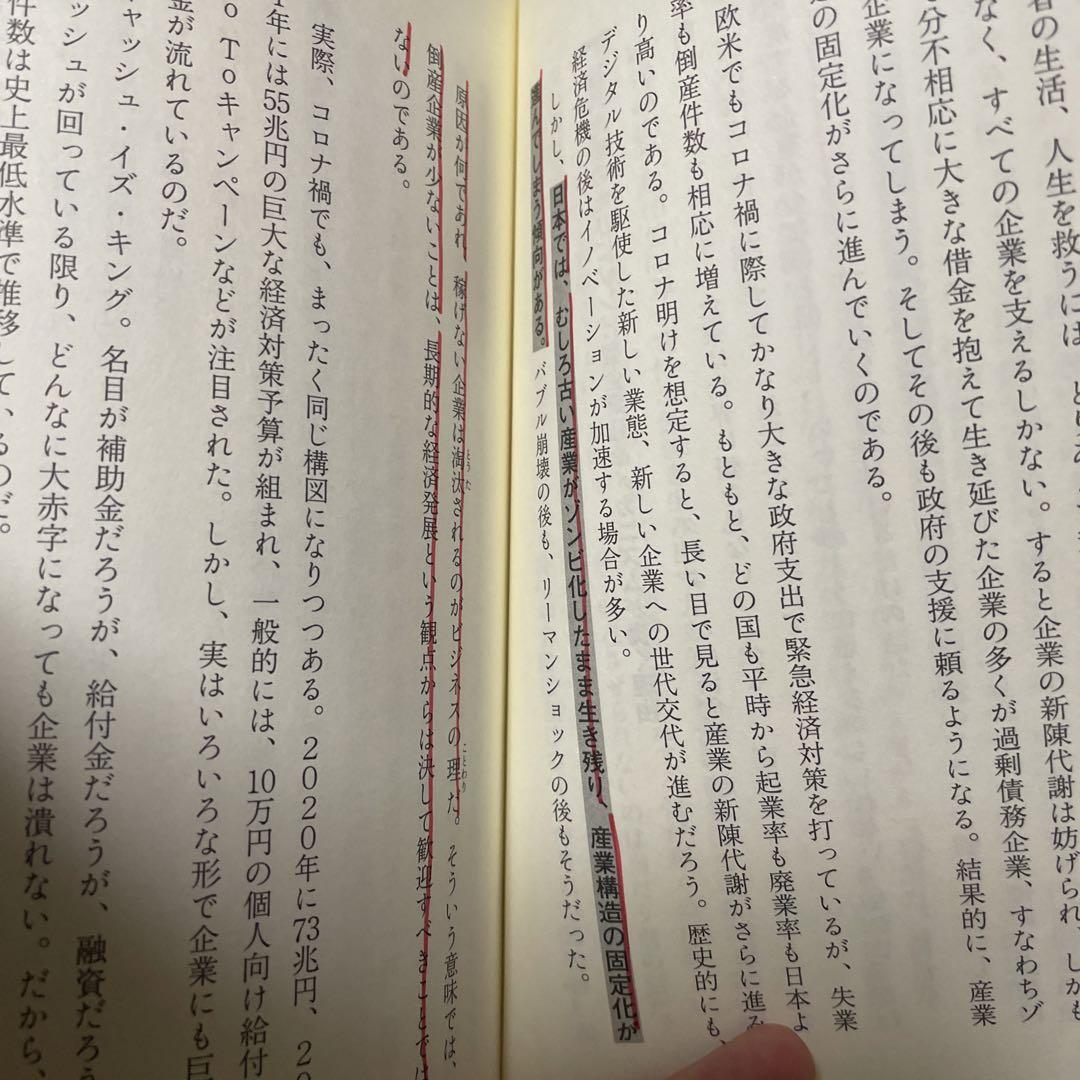 者の生活、人生を救うには、とりあ
なく、すべての企業を支えるしかない。すると企業の新陳代謝は妨げられ、しかも
分不相応に大きな借金を抱えて生き延びた企業の多くが過剰債務企業、すなわちゾ
企業になってしまう。そしてその後も政府の支援に頼るようになる。結果的に、産業
の固定化がさらに進んでいくのである。
欧米でもコロナ禍に際してかなり大きな政府支出で緊急経済対策を打っているが、失業
率も倒産件数も相応に増えている。もともと、どの国も平時から起業率も廃業率も日本よ
り高いのである。コロナ明けを想定すると、長い目で見ると産業の新陳代謝がさらに進み
デジタル技術を駆使した新しい業態、新しい企業への世代交代が進むだろう。歴史的にも、
経済危機の後はイノベーションが加速する場合が多い。
しかし、日本では、むしろ古い産業がゾンビ化したまま生き残り、産業構造の固定化が
進んでしまう傾向がある。バブル崩壊の後も、リーマンショックの後もそうだった。
原因が何であれ、稼げない企業は淘汰されるのがビジネスの理だ。そういう意味では、
とうた
ことわり
倒産企業が少ないことは、長期的な経済発展という観点からは決して歓迎すべきことでは
ないのである。
実際、コロナ禍でも、まったく同じ構図になりつつある。2020年に73兆円、20
年には55兆円の巨大な経済対策予算が組まれ、一般的には、10万円の個人向け給付
To Toキャンペーンなどが注目された。しかし、実はいろいろな形で企業にも巨
金が流れているのだ。
キャッシュ・イズ・キング。名目が補助金だろうが、給付金だろうが、融資だろう
ッシュが回っている限り、どんなに大赤字になっても企業は潰れない。だから、
件数は史上最低水準で推移しているのだ。